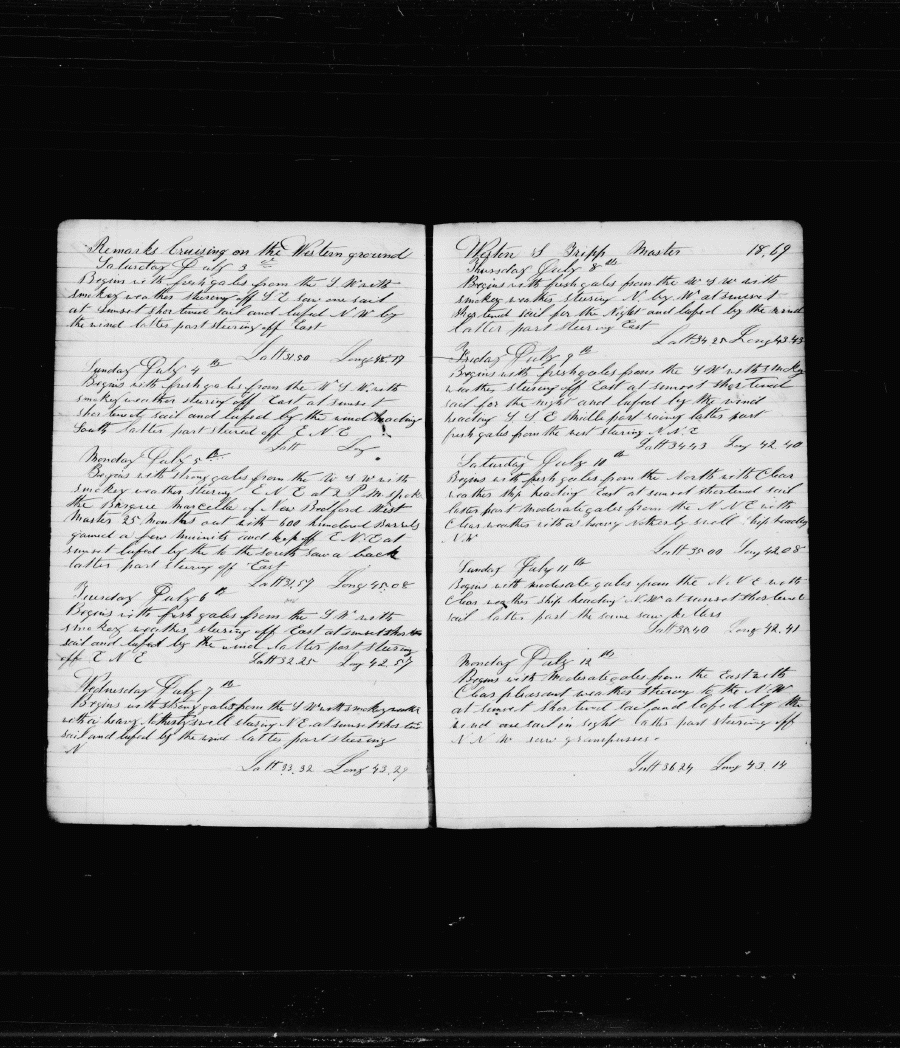 Remarks Cruising on the Western ground
Saturday July 3
Begins with fresh gales from the S W with
smokey weather stering off S E saw one sail
at Sunset shortened sail and lufed N W by
the wind latter part stering off East
Latt 31.50 Long 45.17
Sunday July 4th
Begins with fresh gales from the W S W with
smokey weather stering off East at sunset
shortened sail and lufed by the wind heading
South latter part stered off E N E
Latt Lon
Monday July 5th
Begins with strong gales from the W S W with
smokey weather stering E N E at 2 P M spok
the Barque Marcella of New Bedford West
Master 25 Months out with 600 hundered Barrels
gamed a few and kep off E N E at
sunset lufed by the to the south saw a back
latter part stering off East
Latt 31.57 Long 45.08
Tuesday July 6th
Begins with fresh gales from the S W with
smokey weather stering off East at sunset shortened
sail and lufed by the wind latter part stering
off E N E Latt 32.25 Long 42.57
Wednesday July 7th
Begins with strong gales from the S W with smokey weather
with a heavy swell stering N E at sunset shortened
sail and lufed by the wind latter part stering
N
Latt 33.32 Long 43.29
Weston S Tripp Master 18.69
Thursday July 8th
Begins with fresh gales from the W S W with
smokey weather stering N by W at sunset
shortened sail for the Night and lufed by the wind
latter part stering East
Latt 34 25 Long 43.43
Friday July 9th
Begins with fresh gales from the S W with smokey
weather stering off East at sunset shortened
sail for the night and lufed by the wind
heading S S E middle part latter part
fresh gales from the west stering N N E
Latt 34 43 Long 42.40
Saturday July 10th
Begins with fresh gales from the North with Clear
weather ship heading East at sunset shortened sail
latter part moderate gales from the N N E with
Clear weather with a heavy notherly swell ship heading
N.W
Latt 35 00 Long 42.08
Sunday July 11th
Begins with moderate gales from the N N E with
Clear weather ship heading N.W at sunset shortened
sail latter part the same saw
Latt 36.40 Long 42.41
Monday July 12th
Begins with Moderate gales from the East with
Clear pleasent weather stering to the N.W
at sunset shortened sail and lufed by the
wind one sail in sight latter part stering off
N N W saw grampusses
Latt 36 24 Long 43.14